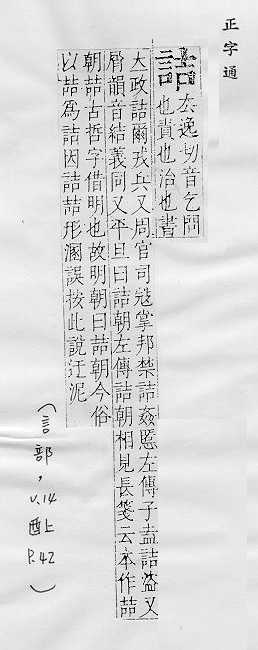 正字通
詰
厺逸切音乞問
也責也治也書
大政詰爾戎兵又周官司寇掌邦禁詰姦慝左傳子盍詰盜又
屑韻音結義同又平旦曰詰朝左傳詰朝相見長箋云本作喆
朝喆古哲字借明也故明朝曰詰朝今俗
以喆爲詰因詰喆形溷誤按此說迂泥
(言部,
V.14
酉上
P.42
)